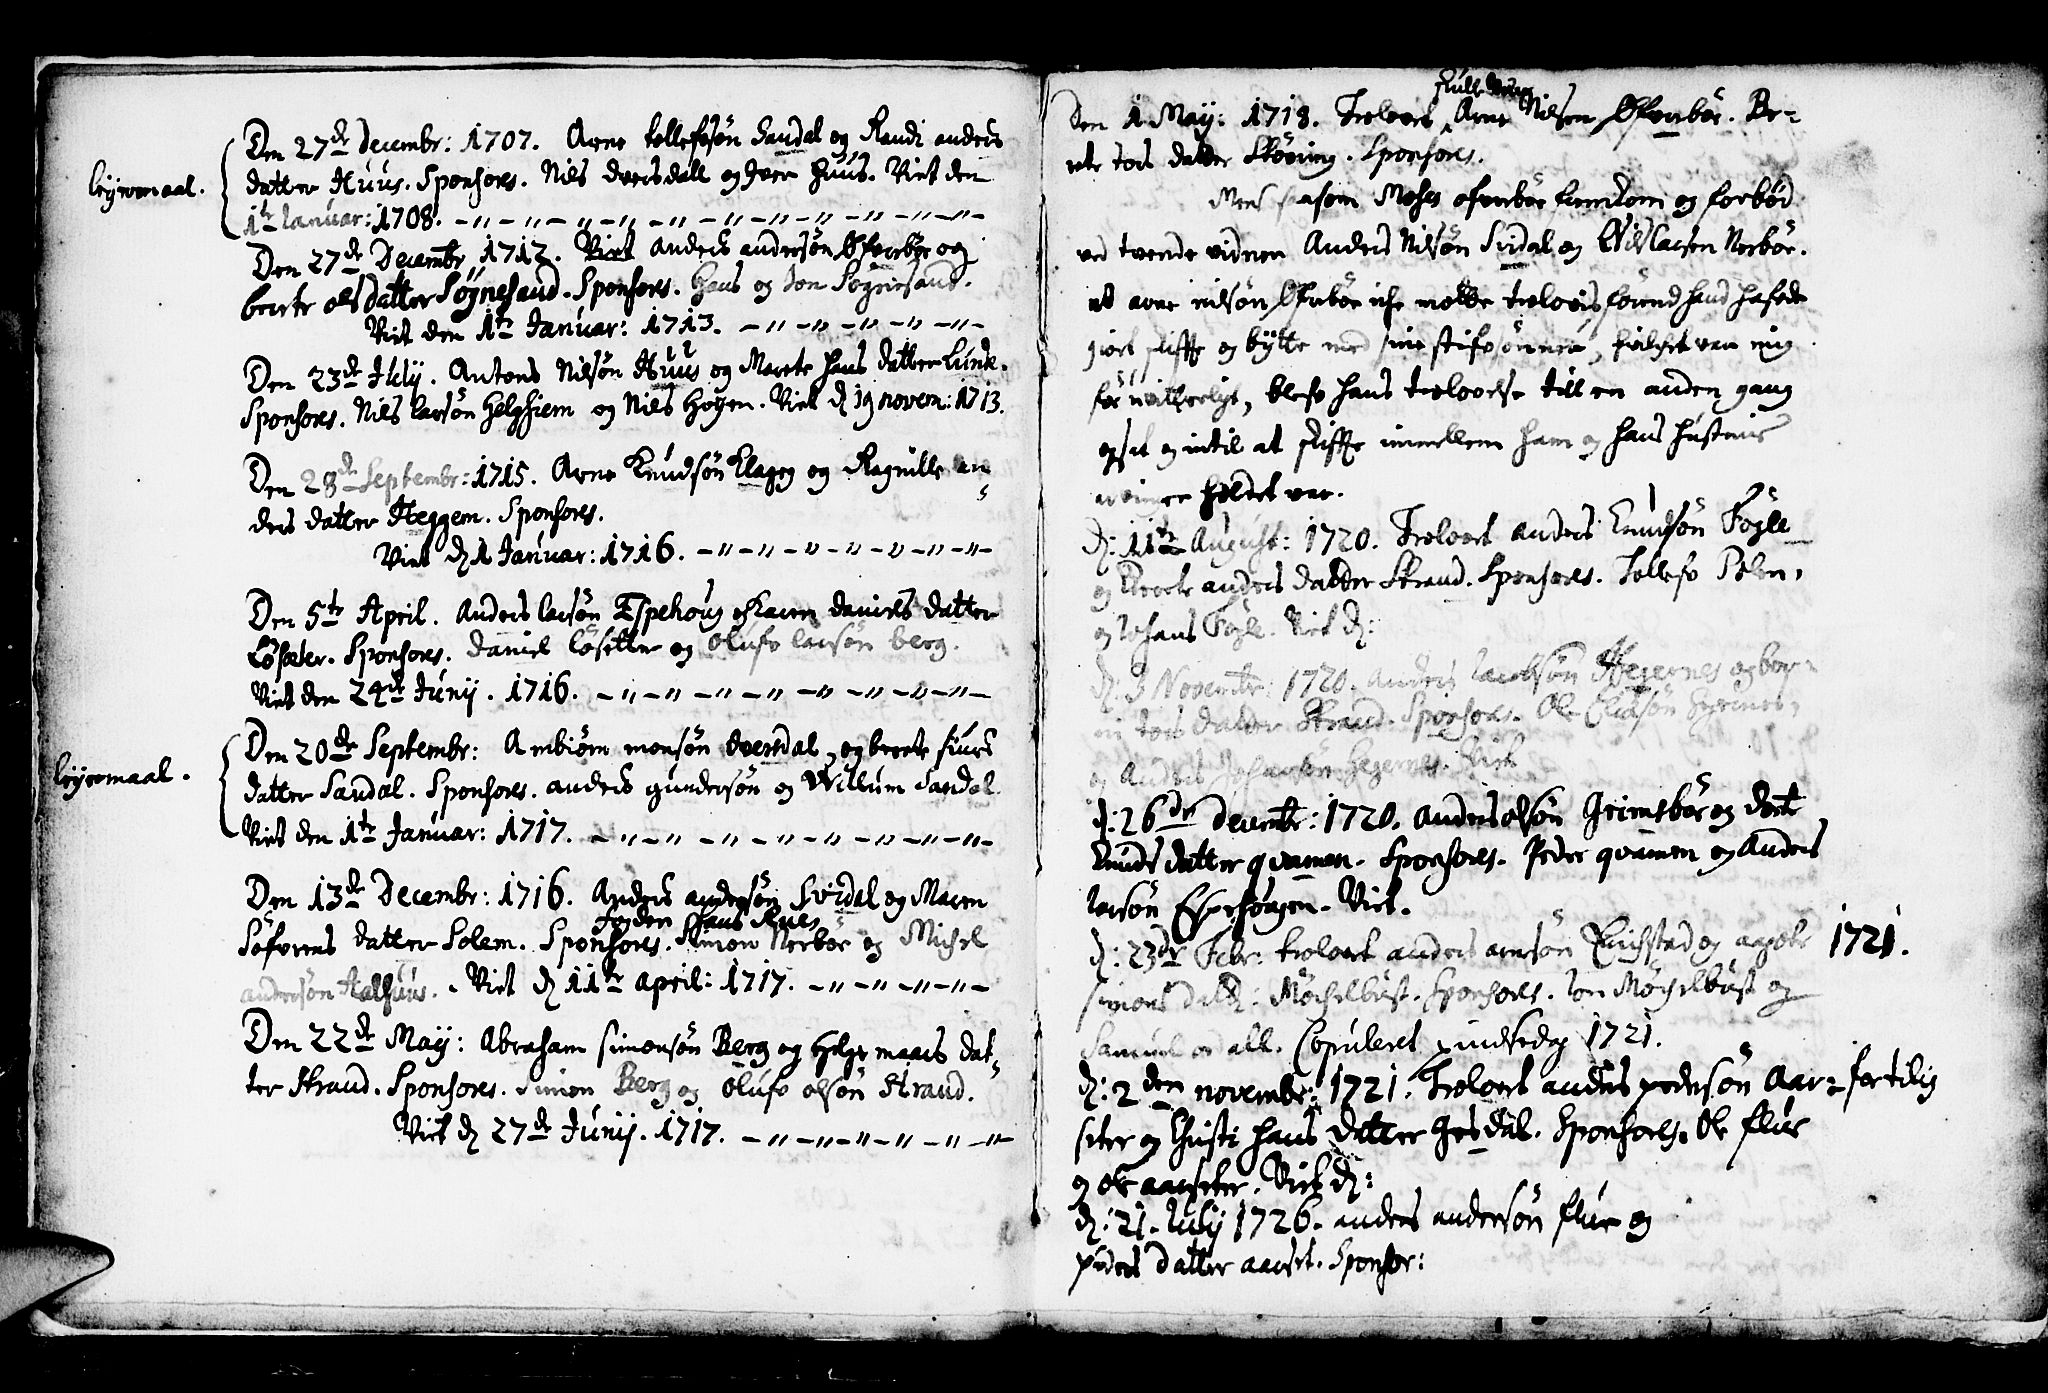 Den 27de Decembr: 1707. Arne tollefsøn Sandal og Randi anders
datter Huus. Sponsores. Nils dversdall og Iver Huus. Viet den
leyermaal.
1te Ianuar: 1708.
Den 27de Decembr 1712. Viet anders andersøn Øfverbøe og
berte ols datter Sögnesand. Sponsores. Hans og Jon Sögnesand.
Viet den 1te Januar: 1713.
Den 23de July. Antons Nilsøn Huus og Marete hans datter Lunde.
Sponsores. Nils larsøn Helghiem og Nils Hogen. Viet d 19 novem: 1713.
Den 28de Septembr: 1715. Arne Knudsøn Klageg og Ragnille an=
ders datter Heggem. Sponsores.
Viet d 1 Januar: 1716.
Den 5te April. Anders larsøn Espehoug og Karen daniels datter
Løsæter. Sponsores. Daniel Løsetter og Olufv larsøn berg.
Viet den 24de Junij. 1716.
Den 20de Septembr: Ambiørn monsøn dversdal, og berete siurs
leyermaal.
datter Sandal. Sponsores. anders gundersøn og Willum Sandal
Viet den 1te Januar: 1717.
Den 13de Decembr: 1716. Anders andersøn Svidal og Maren
Søfvrens datter Solem. Sponsores. Fogden Hans Rues Simon Nerbøe og Michel
andersøn Aalhuus. Viet d 11te april: 1717.
Den 22de Maij: Abraham simonsøn Berg og Helge maars dat=
ter Strand. Sponsores. Simon Berg og Olufv olsøn Strand.
Viet d 27de Junij. 1717.
Den 1 Maij: 1718. Trolovet Arne Nilsen Øfverbøe. Be=
rete tors datter Skøring. Sponsores.
Mens saasom Moses ofverbøe fremkom og forbød
ved tvende vidner Anders Nilsøn Svidal og Nils larsen Nerbøe.
at arne nilsøn Øfverbøe iche motte trolovis førend hand hafde
giort skiffte og bytte med sine stifsønner, hvilchet var mig
før uvitterligt, blefv hans trolovelse till en anden gang
opsat og intil at skiffte immellem ham og hans hustrues
arvinger holdet var.
d: 11te August: 1720. Trolovet anders Knudsøn Fögle
og Berete anders datter Strand. Sponsores. Tollefv Polen,
og Johans Fögle. Viet d:
d: 3 Novembr: 1720. Anders Jacobsøn Hegrenes og bory=
ni tors datter Strand. Sponsores. Ole Eliasøn Hegrenes,
og Anders Johansøn Hegrenes. Viet
d: 26de decembr: 1720. Anders olsøn Grimsbøe og dorte
Knuds datter qvamen. Sponsores. Peder qvamen og Anders
larsøn Espehougen. Viet.
d: 23de Febr: trolovet anders arnsøn Eichstad og aagote 1721.
simons datt: Møchelbust. Sponsores. Jon Møchelbust og
Samuel ordall. Copuleret pindsedag 1721.
d: 2den novembr: 1721. Trolovet anders pedersøn Aar= fortilig
seter og Christi hans datter Gesdal. Sponsores. Ole flur
og ole aarseter. Viet d:
d: 21. July 1726. anders andersøn flur og
peders datter aarset. Sponsor: